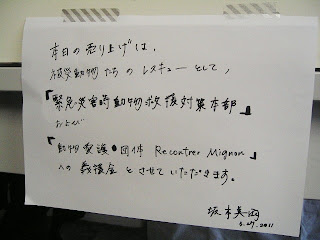 本日の売り上げは、
被災動物たちのレスキューとして、
『緊急災害時動物救援対策本部』
および
『動物愛護●団体 Recontrer Mignon』
への義援金とさせていただきます。
坂本美雨
5.27.2011